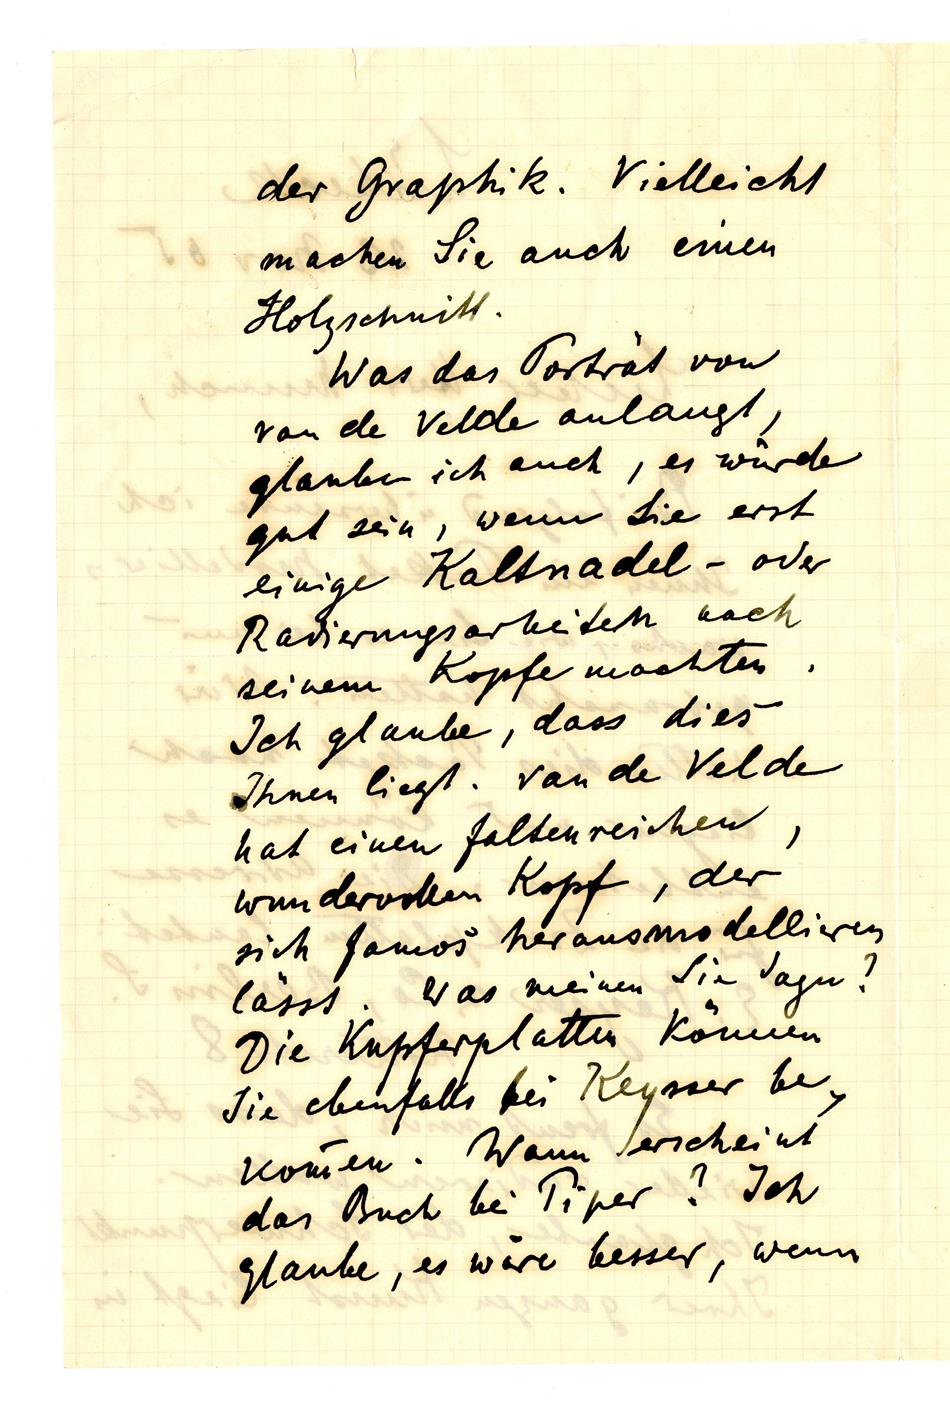 der Graphik. Vielleicht
machen Sie auch einen
Holzschnitt.
Was das Porträt von
van de Velde anlangt,
glaube ich auch, es würde
gut sein, wenn Sie erst
einige Kaltnadel- oder
Radierungsarbeiten nach
seinem Kopfe machten.
Ich glaube, dass dies
Ihnen liegt. Van de Velde
hat einen faltenreichen,
wundervollen Kopf, der
sich famos herausmodellieren
lässt. Was meinen Sie dazu?
Die Kupferplatten können
Sie ebenfalls bei Keysser be-
kom̅en. Wann erscheint
das Buch bei Piper? Ich
glaube, es wäre besser, wenn